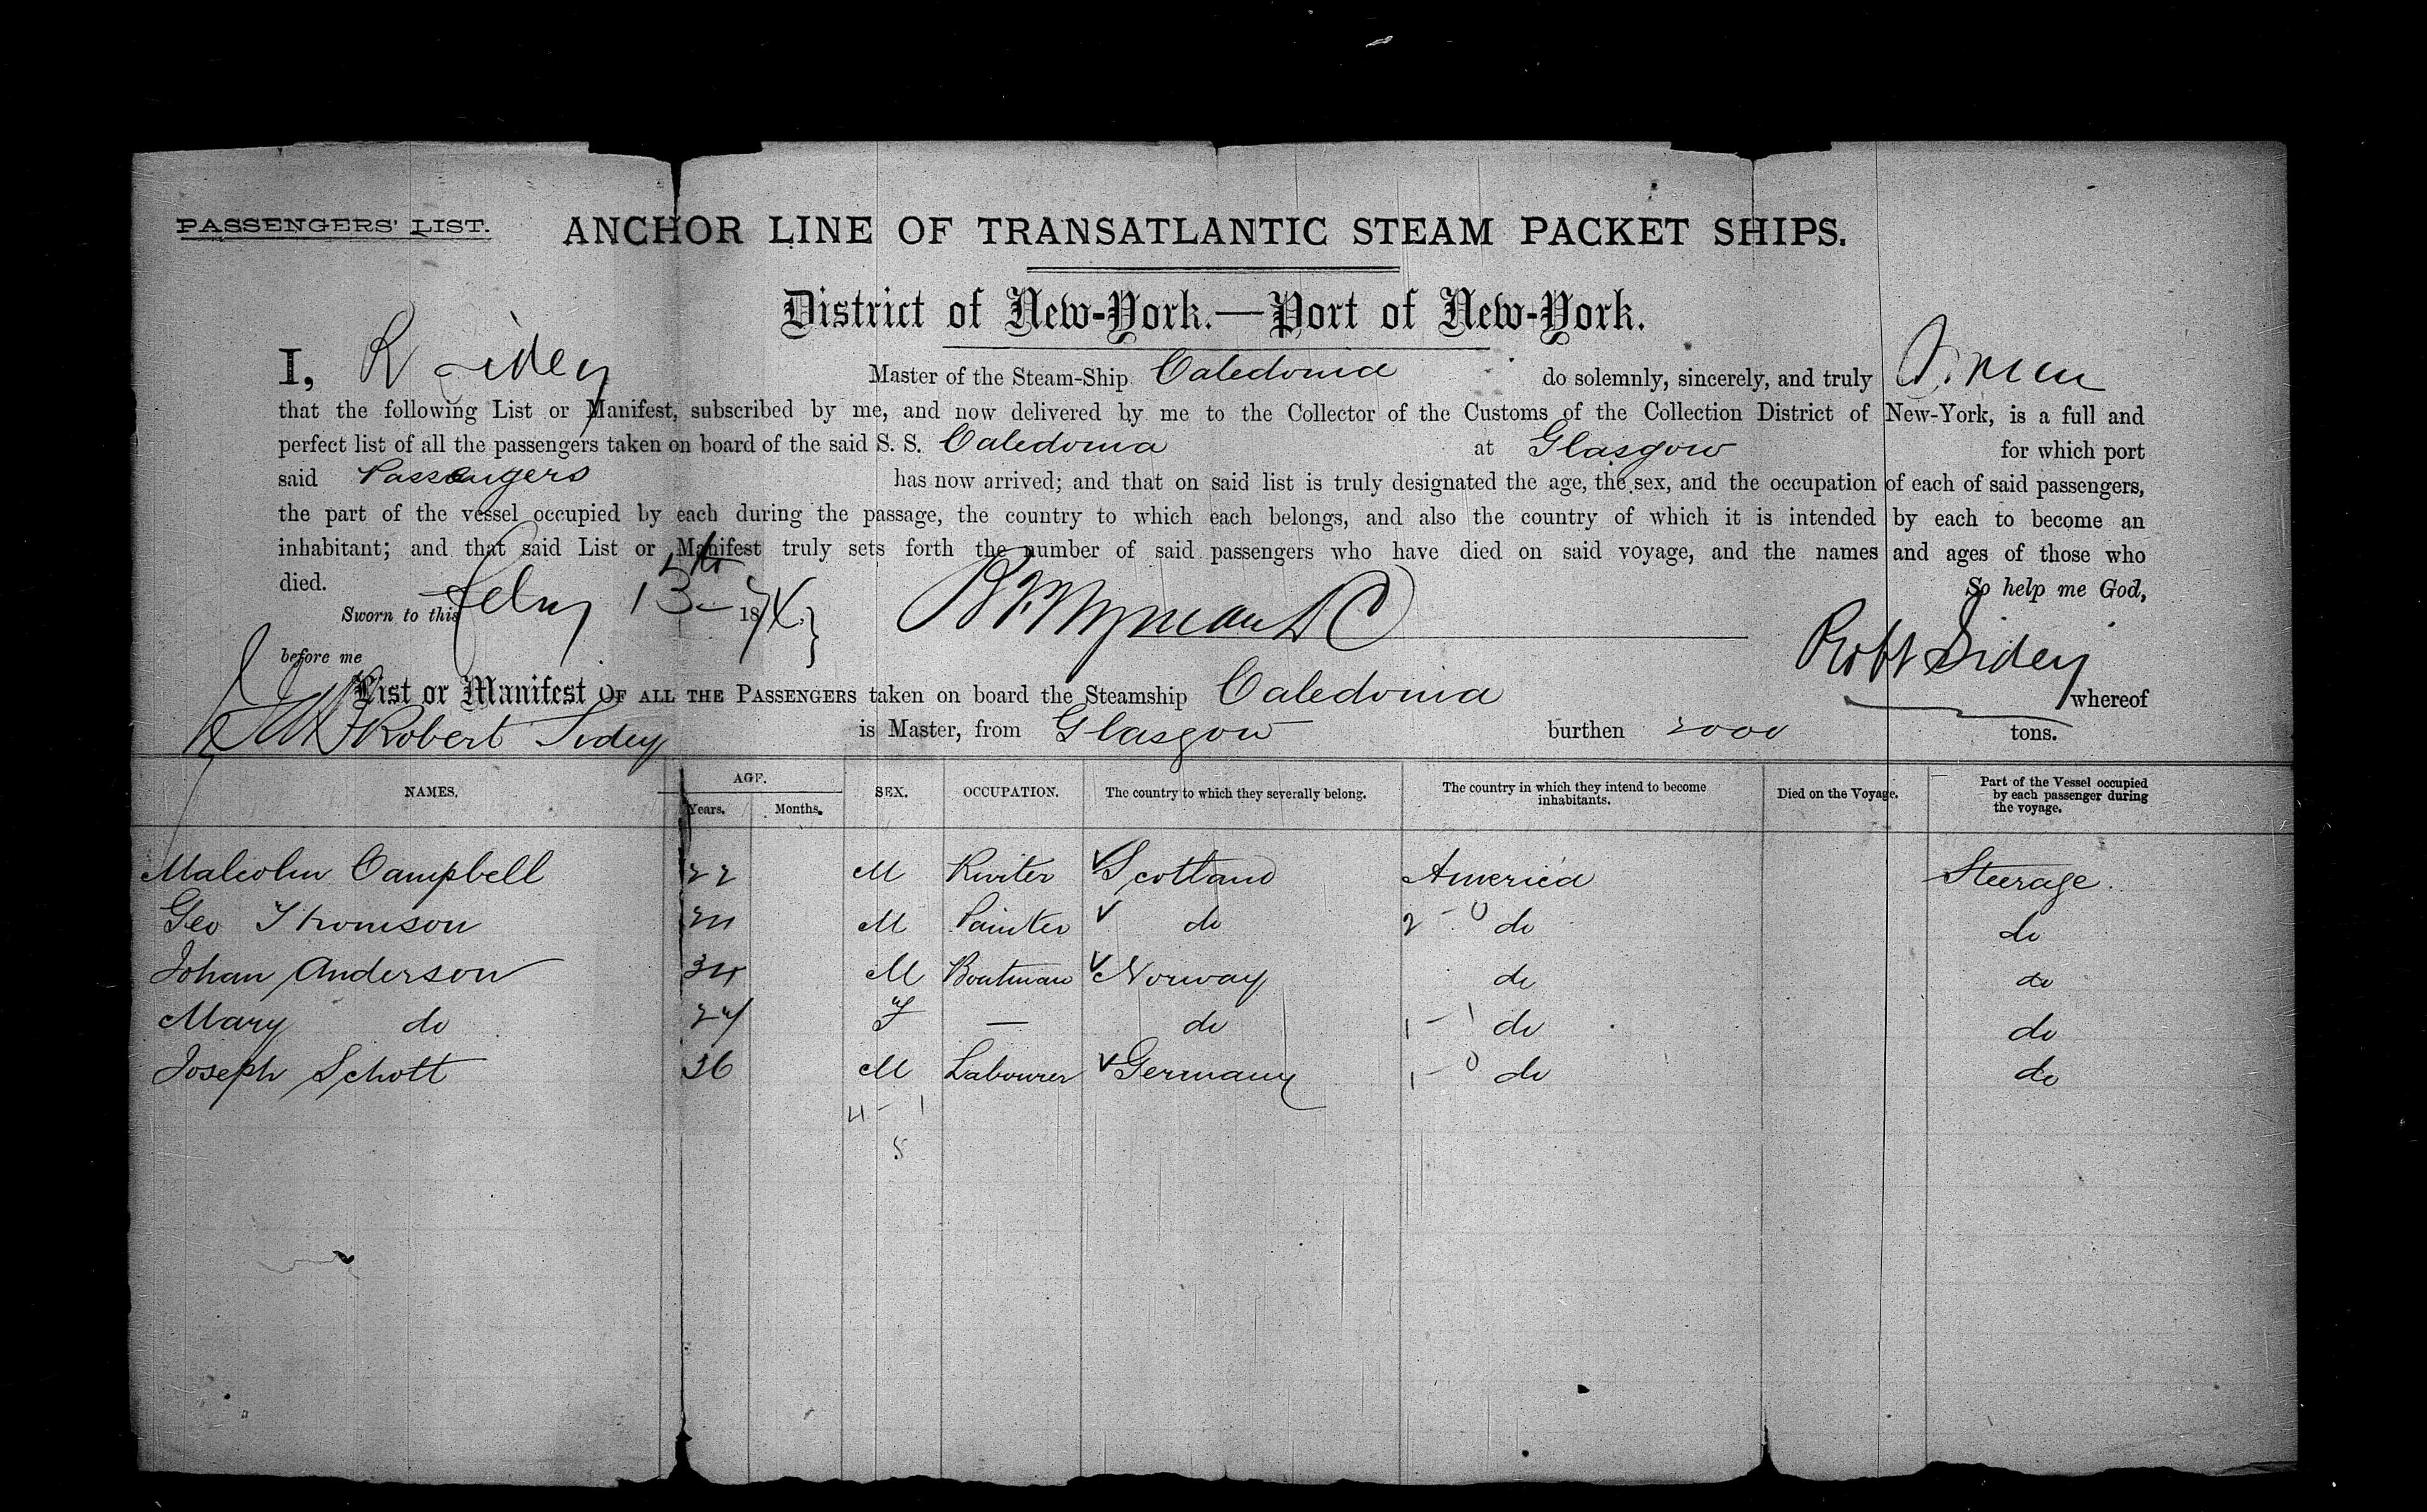 PASSENGERS' LIST. ANCHOR LINE OF TRANSATLANTIC STEAM PACKET SHIPS.
District of New-York.—Port of New-York.
I, R Sidey Master of the Steam-Ship Caledonia do solemnly, sincerely, and truly
that the following List or Manifest, subscribed by me, and now delivered by me to the Collector of the Customs of the Collection District of New-York, is a full and
perfect list of all the passengers taken on board of the said S. S. Caledonia at Glasgow for which port
said Passengers has now arrived; and that on said list is truly designated the age, the sex, and the occupation of each of said passengers,
the part of the vessel occupied by each during the passage, the country to which each belongs, and also the country of which it is intended by each to become an
inhabitant; and that said List or Manifest truly sets forth the number of said passengers who have died on said voyage, and the names and ages of those who
died. So help me God,
Sworn to this Feby 13th 18
before me Robt Sidey
List or Manifest OF ALL THE PASSENGERS taken on board the Steamship Caledonia whereof
Robert Sidey is Master, from Glasgow burthen 2000 tons.
NAMES. AGE. Years. Months. SEX. OCCUPATION. The country to which they severally belong. The country in which they intend to become inhabitants. Died on the Voyage. Part of the Vessel occupied by each passenger during the voyage.
Malcolm Campbell 22 M Riviter Scotland America Steerage.
Geo Thomson M Painter do 2 - 0 do do
Johan Anderson 34 M Boatman Norway do do
Mary do F — do 1 - 1 do do
Joseph Schott 36 M Labourer Germany 1 - 0 do do
4 - 1
5